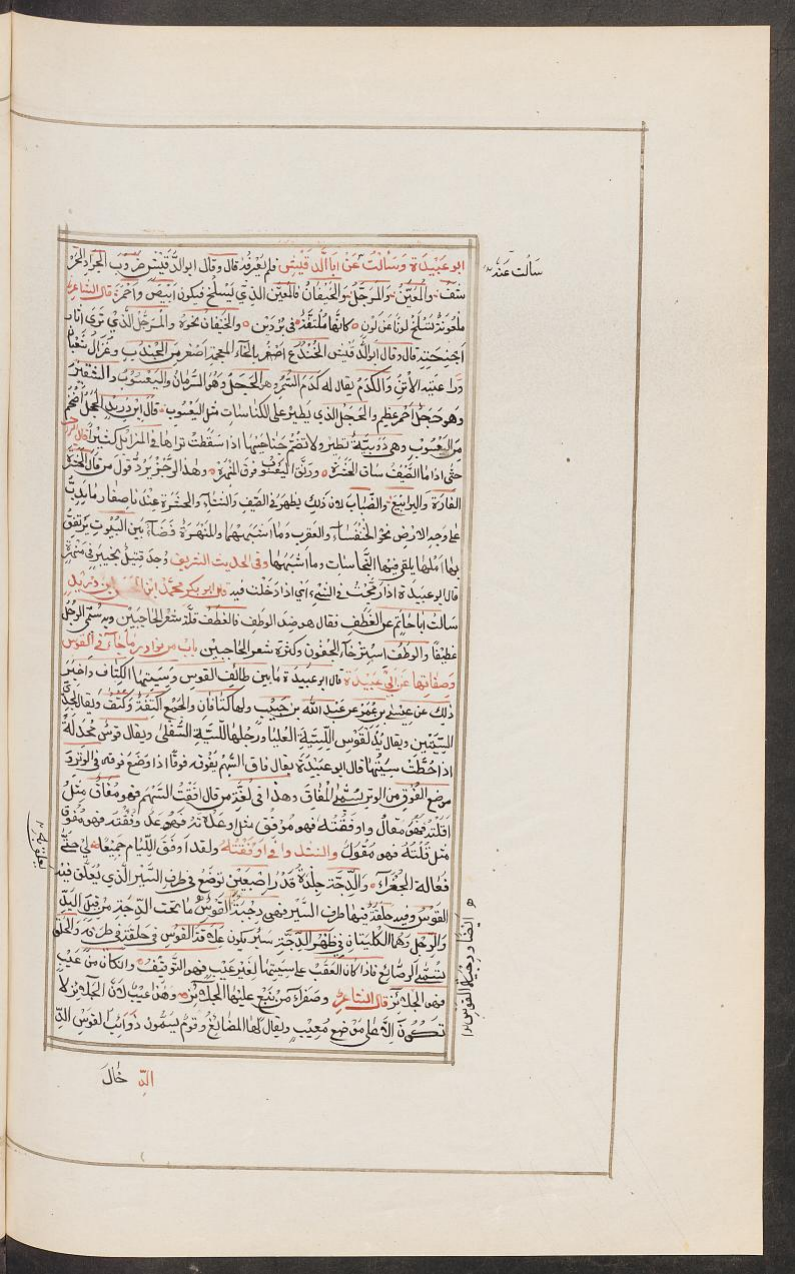 ابو عبيدة وسالت عن ابا الدقيش فلم يعرفه قال وقال ابوالدقيش ضروب الجراد الحرْ
شف والمعين والمرجل والخيفان فالمعين الذي يسلخ فيكون ابيض واحمر قال الشاعر
ملعونة تسلخ لونا عن لون كانها ملتفة في بردين والخيفان نحوه والمرجل الذي ترى اثار
اجنحته قال وقال ابوالدقيش الخندع اصغر بالخاء المعجمة اصغر من الجندب وغزال شعبان
وراعية الأتن والكدم يقال له كدم السمر وهي الحجل وهو السرمان واليعسوب والشقير
وهو جحل احمر عظيم والجحل الذي يطير على الكناسات مثل اليعسوب قال ابن دريد الجحل اضخم
من اليعسوب وهي دويبة تطير ولا تضم جناحيها اذا سقطت تراها في المزابل كثيرا قال
حتى اذا ما الضيف سات الحشرة ورنق اليعسوب فوق المنهرة وهذا الرجز يرد قول من قال الحشرة
الفارة واليرابيع والضباب لان ذلك يظهر في الصيف والشتاء والحشرة عندنا صغار ما يدب
على وجه الارض نحو الخنفساء والعقرب وما اشبههما والمنهرة فضاء بين البيوت يرتفق
بها اهلها يلقى فيها النجاسات وما اشبهها وفي الحديث الشريف وجد قتيل بخيبر في منهرة
قال ابو عبيدة اذا رتجت في الشيء اي اذا دخلت فيه قال ابو بكر محمد ابن الحسن ابن دريد
سالت ابا حاتم عن الغطف فقال هو ضد الوطف فالغطف قلة شعر الحاجبين وبه سمي الرجل
غطيفا والوطف استرخاء الجفون وكثرة شعر الحاجبين باب من نوادر ما جاء في القوس
وصفاتها عن ابي عبيدة قال ابو عبيدة ما بين طائف القوس وسيتها الكتاف واخبر
ذلك عن عيسى بن عمر عن عبد الله بن حبيب ولها كتافان والجمع اكتفة وكتف ويقال لحدي
السيتين ويقال يد القوس للسية العليا ورجلها للسية السفلى ويقال قوس محدلة
اذا حطت سيتها قال ابو عبيدة يقال فاق السهم يفوقه فوقا اذا وضع فوقه في الوتر و
موضع الفوق من الوتر يسمى المفاق وهذا في لغة من قال افقت السهم فهو مفاق مثل
اقلته فهو مقال واوفقته فهو موفق مثل اوعدته فهو وفقته فهو مفوق
مثل قلته فهو مقول والنشد واني اوفقته ولقد اوفق اللئام جميعا لي حتى
فعالة الجعراء والدجة جلدة قدر اصبعين توضع في طرف السير الذي يعلق فيه
القوس وفيه حلقة فيها طرف السير فهي دجة القوس ما تحت الدجة من قبل اليد
والرجل وهما الكليتان في ظهر الدجة سير يكون علاقة القوس في حلقة في طرفه والحلق
تسمى الرصائع فاذا كان العقب على سيتها لغير عيب فهو التوقيف واذا كان من عيب
فهو الجلائز قال الشاعر وصفراء من نبع عليها الجلائز وهذا عيب لان الجلائز لا
تكون الا على موضع معيب ويقال لها المضائغ وقوم يسمون ذوائب القوس الد
سالت عنه
الد خال